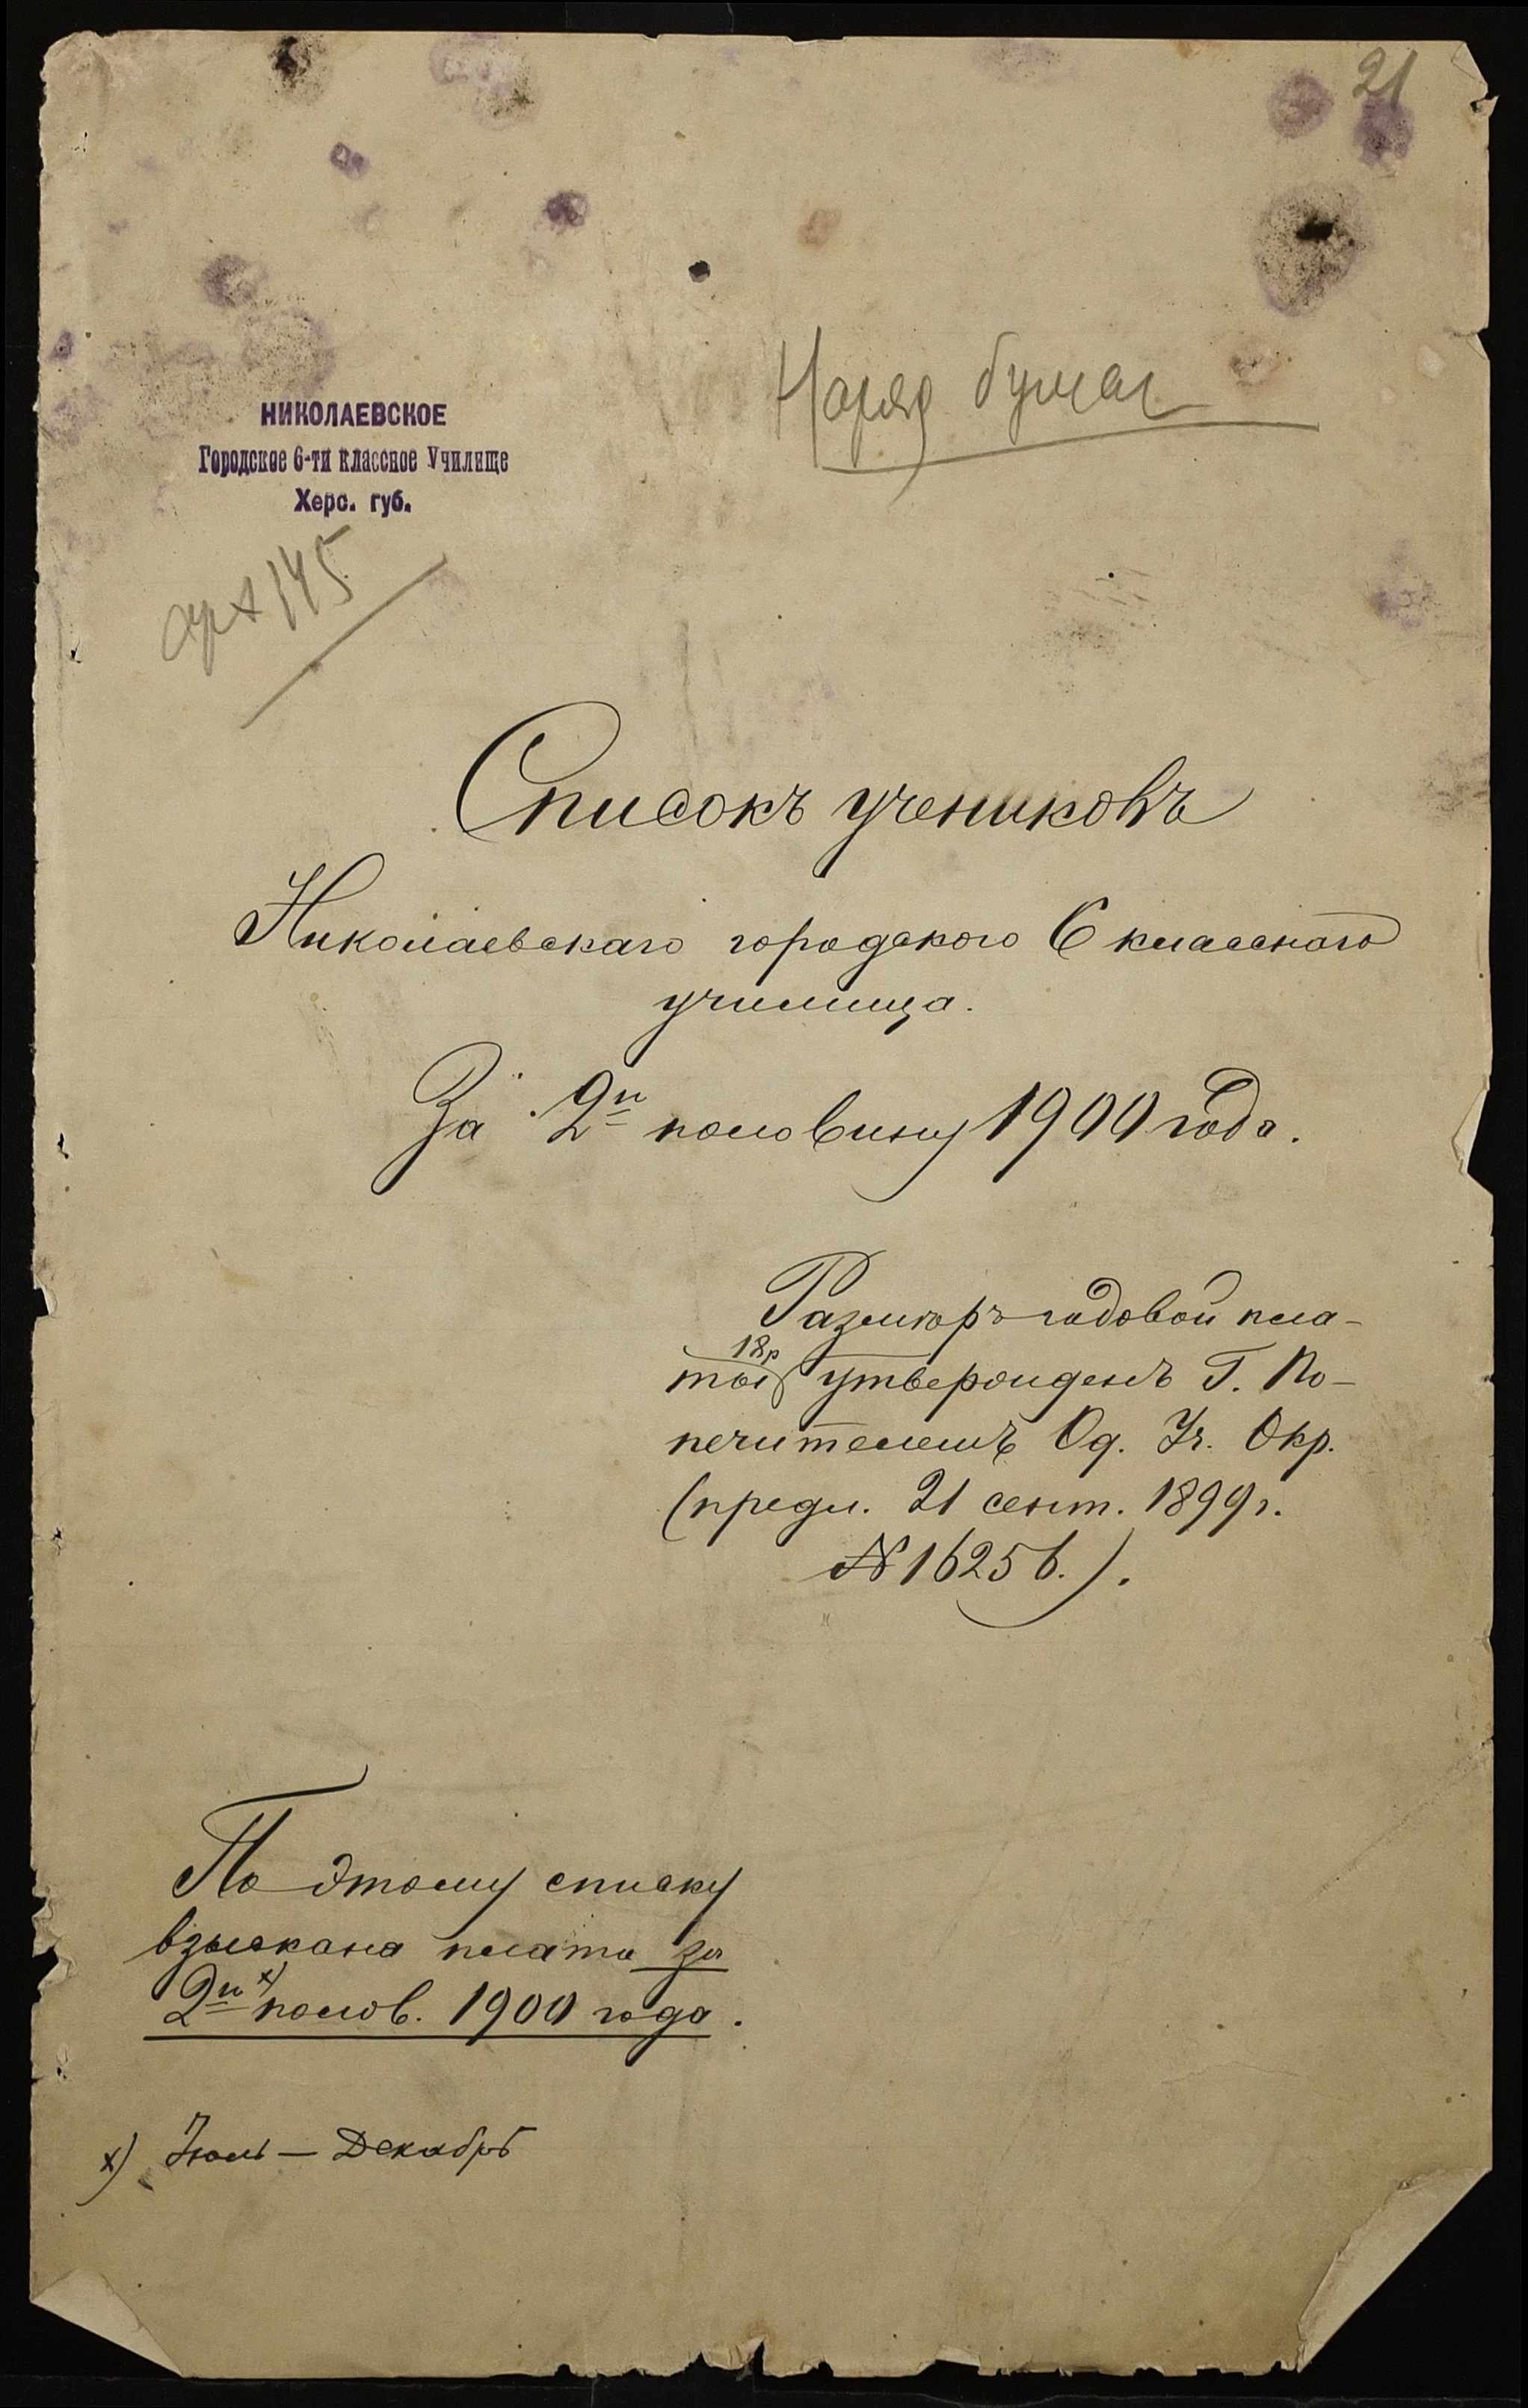 21
Наряд бумаг
НИКОЛАЕВСКОЕ
Городское 6-ти классное Училище
Херс. губ.
арх 145
Списокъ учениковъ
Николаевскаго городского 6 классного
училища.
За 2ю половину 1900 года.
Размѣръ годовой пла-
18р
ты утвержденъ Г. По-
печителемъ Од. Уч. Окр.
(предл. 21 сент. 1899г.
№ 16256.).
По этому списку
взыскана плата за
2ю х) полов. 1900 года.
х) Июль — Декабрь